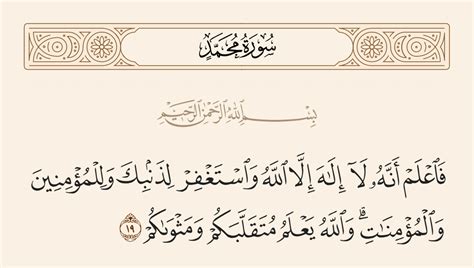 سُورَةُ مُحَمَّدٍ
بِسْمِ ٱللَّهِ ٱلرَّحْمَٰنِ ٱلرَّحِيمِ
فَٱعْلَمْ أَنَّهُۥ لَآ إِلَٰهَ إِلَّا ٱللَّهُ وَٱسْتَغْفِرْ لِذَنۢبِكَ وَلِلْمُؤْمِنِينَ
وَٱلْمُؤْمِنَٰتِۗ وَٱللَّهُ يَعْلَمُ مُتَقَلَّبَكُمْ وَمَثْوَىٰكُمْ ١٩